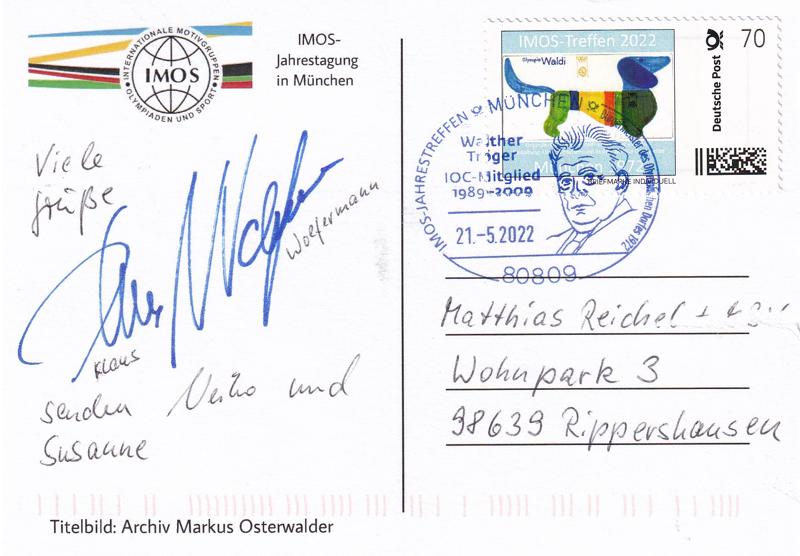 INTERNATIONALE MOTIVGRUPPEN
IMOS
OLYMPIADEN UND SPORT
IMOS-
Jahrestagung
in München
Viele
Grüße
Wolfermann
Klaus
senden Heiko und
Susanne
Titelbild: Archiv Markus Osterwalder
IMOS-Treffen 2022
Olympia Waldi
Deutsche Post
70
BRIEFMARKE INDIVIDUELL
IMOS-JAHRESTREFFEN MÜNCHEN
Walther
Tröger
IOC-Mitglied
1989-2009
Bürgermeister des Olympischen Dorfes 1972
21.-5.2022
80809
Matthias Reichel +
Wohnpark 3
98639 Rippershausen